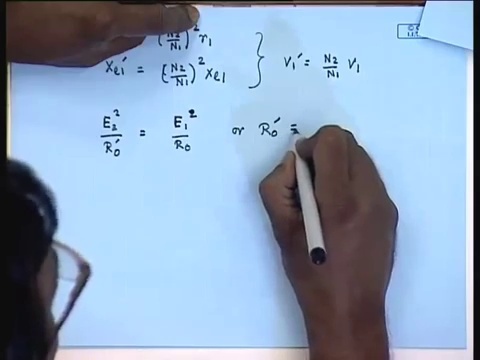 (N2/N1)² r1
Xl1' = (N2/N1)² Xl1 } V1' = N2/N1 V1
E2²/R0' = E1²/R0 or R0' =